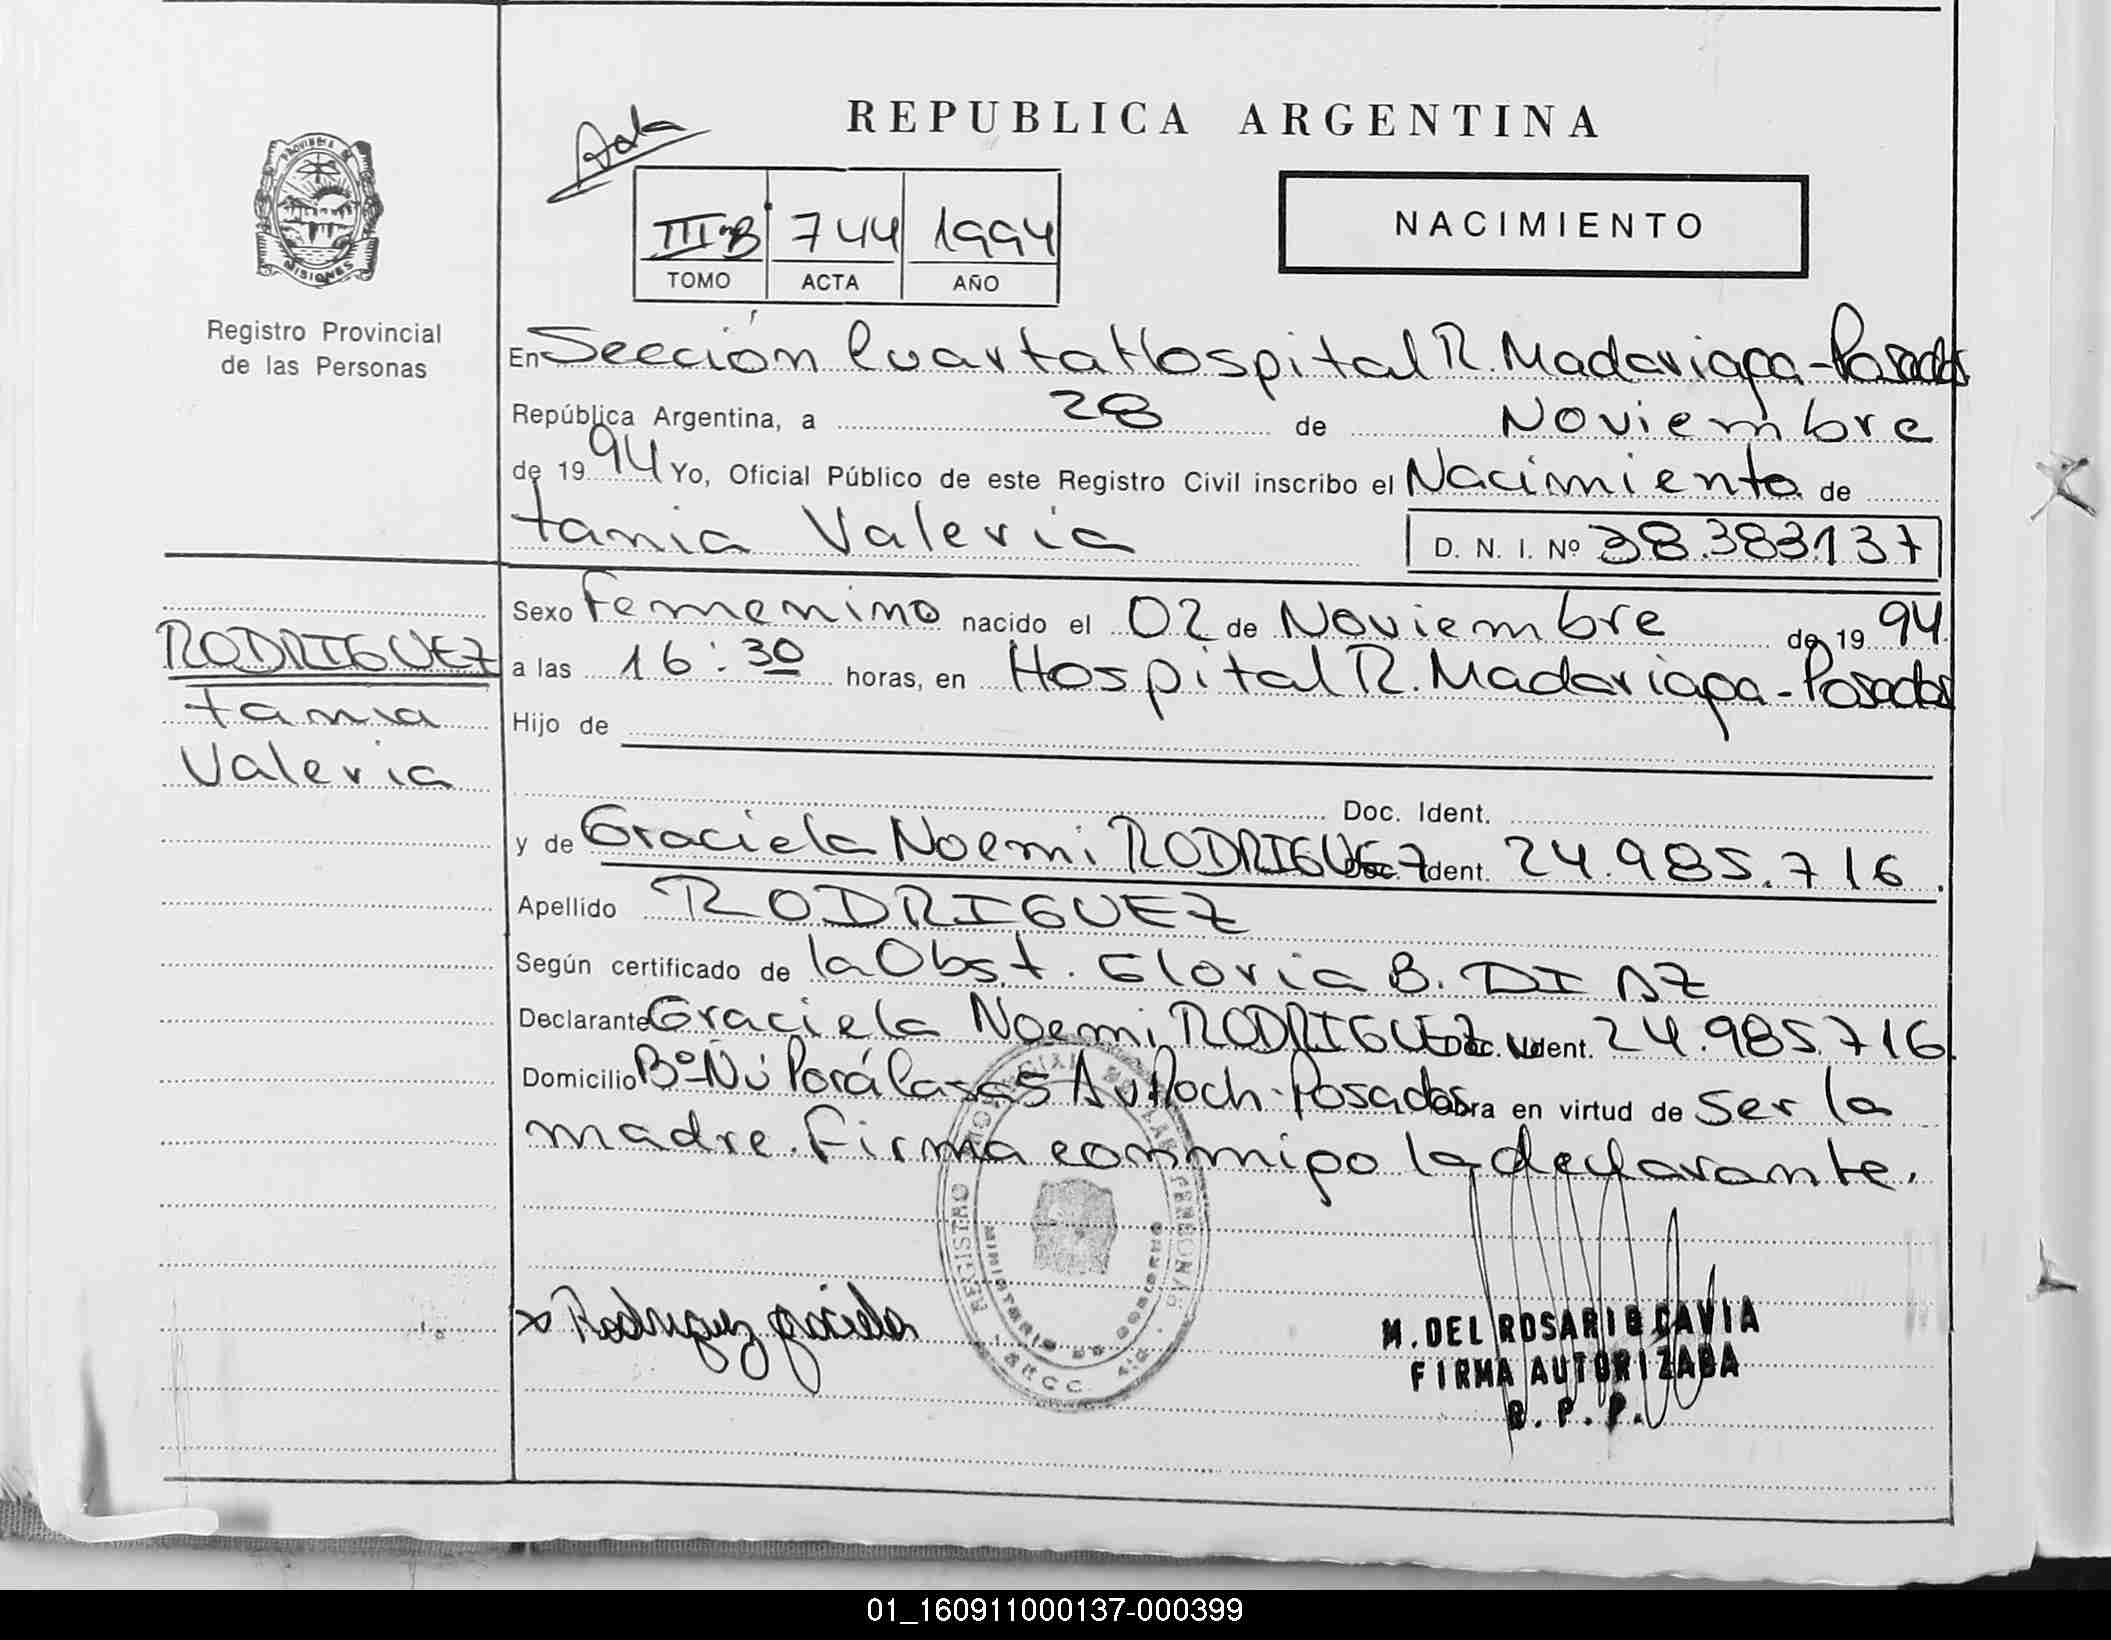 REPUBLICA ARGENTINA
III-B 744 1994
TOMO ACTA AÑO
NACIMIENTO
PROVINCIA DE
MISIONES
Registro Provincial
de las Personas
En Sección Cuarta Hospital R. Madariaga - Posadas
República Argentina, a 28 de Noviembre
de 1994 Yo, Oficial Público de este Registro Civil inscribo el Nacimiento de
tania Valeria D. N. I. Nº 38.383.137
RODRIGUEZ
tania
Valeria
Sexo Femenino nacido el 02 de Noviembre de 1994.
a las 16:30 horas, en Hospital R. Madariaga - Posadas
Hijo de
Doc. Ident.
y de Graciela Noemi RODRIGUEZ Doc. Ident. 24.985.716.
Apellido RODRIGUEZ
Según certificado de la Obst. Gloria B. DIAZ
Declarante Graciela Noemi RODRIGUEZ Doc. Ident. 24.985.716.
Domicilio Bº Ñu Porá Casas Posadas Obra en virtud de ser la
madre. Firma conmigo la declarante.
REGISTRO PROVINCIAL DE LAS PERSONAS
MINISTERIO DE GOBIERNO
SECC. 4ta.
x Rodriguez graciela
M. DEL ROSARIO CAVIA
FIRMA AUTORIZADA
R. P. P.
01_160911000137-000399